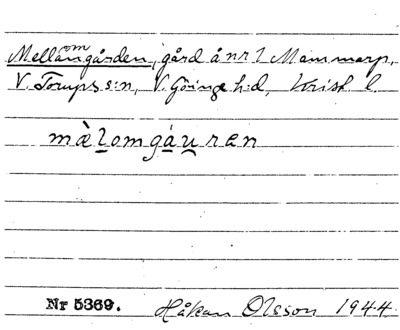 Mellomgården, gård å nr 1 Mammarp,
V. Torups s:n, V. Göinge h:d, Krist. l.
mæ̀lomgáuren
Nr 5369. Håkan Olsson 1944